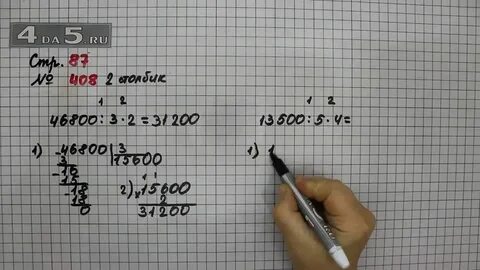 4 DA 5.RU
Стр. 87
№ 408 2 столбик
1 2
46800 : 3 · 2 = 31200
1) -46800 | 3
3 15600
-16
15
-18
18
0
2) 1 1
×15600
2
31200
1 2
13500 : 5 · 4 =
1) 1